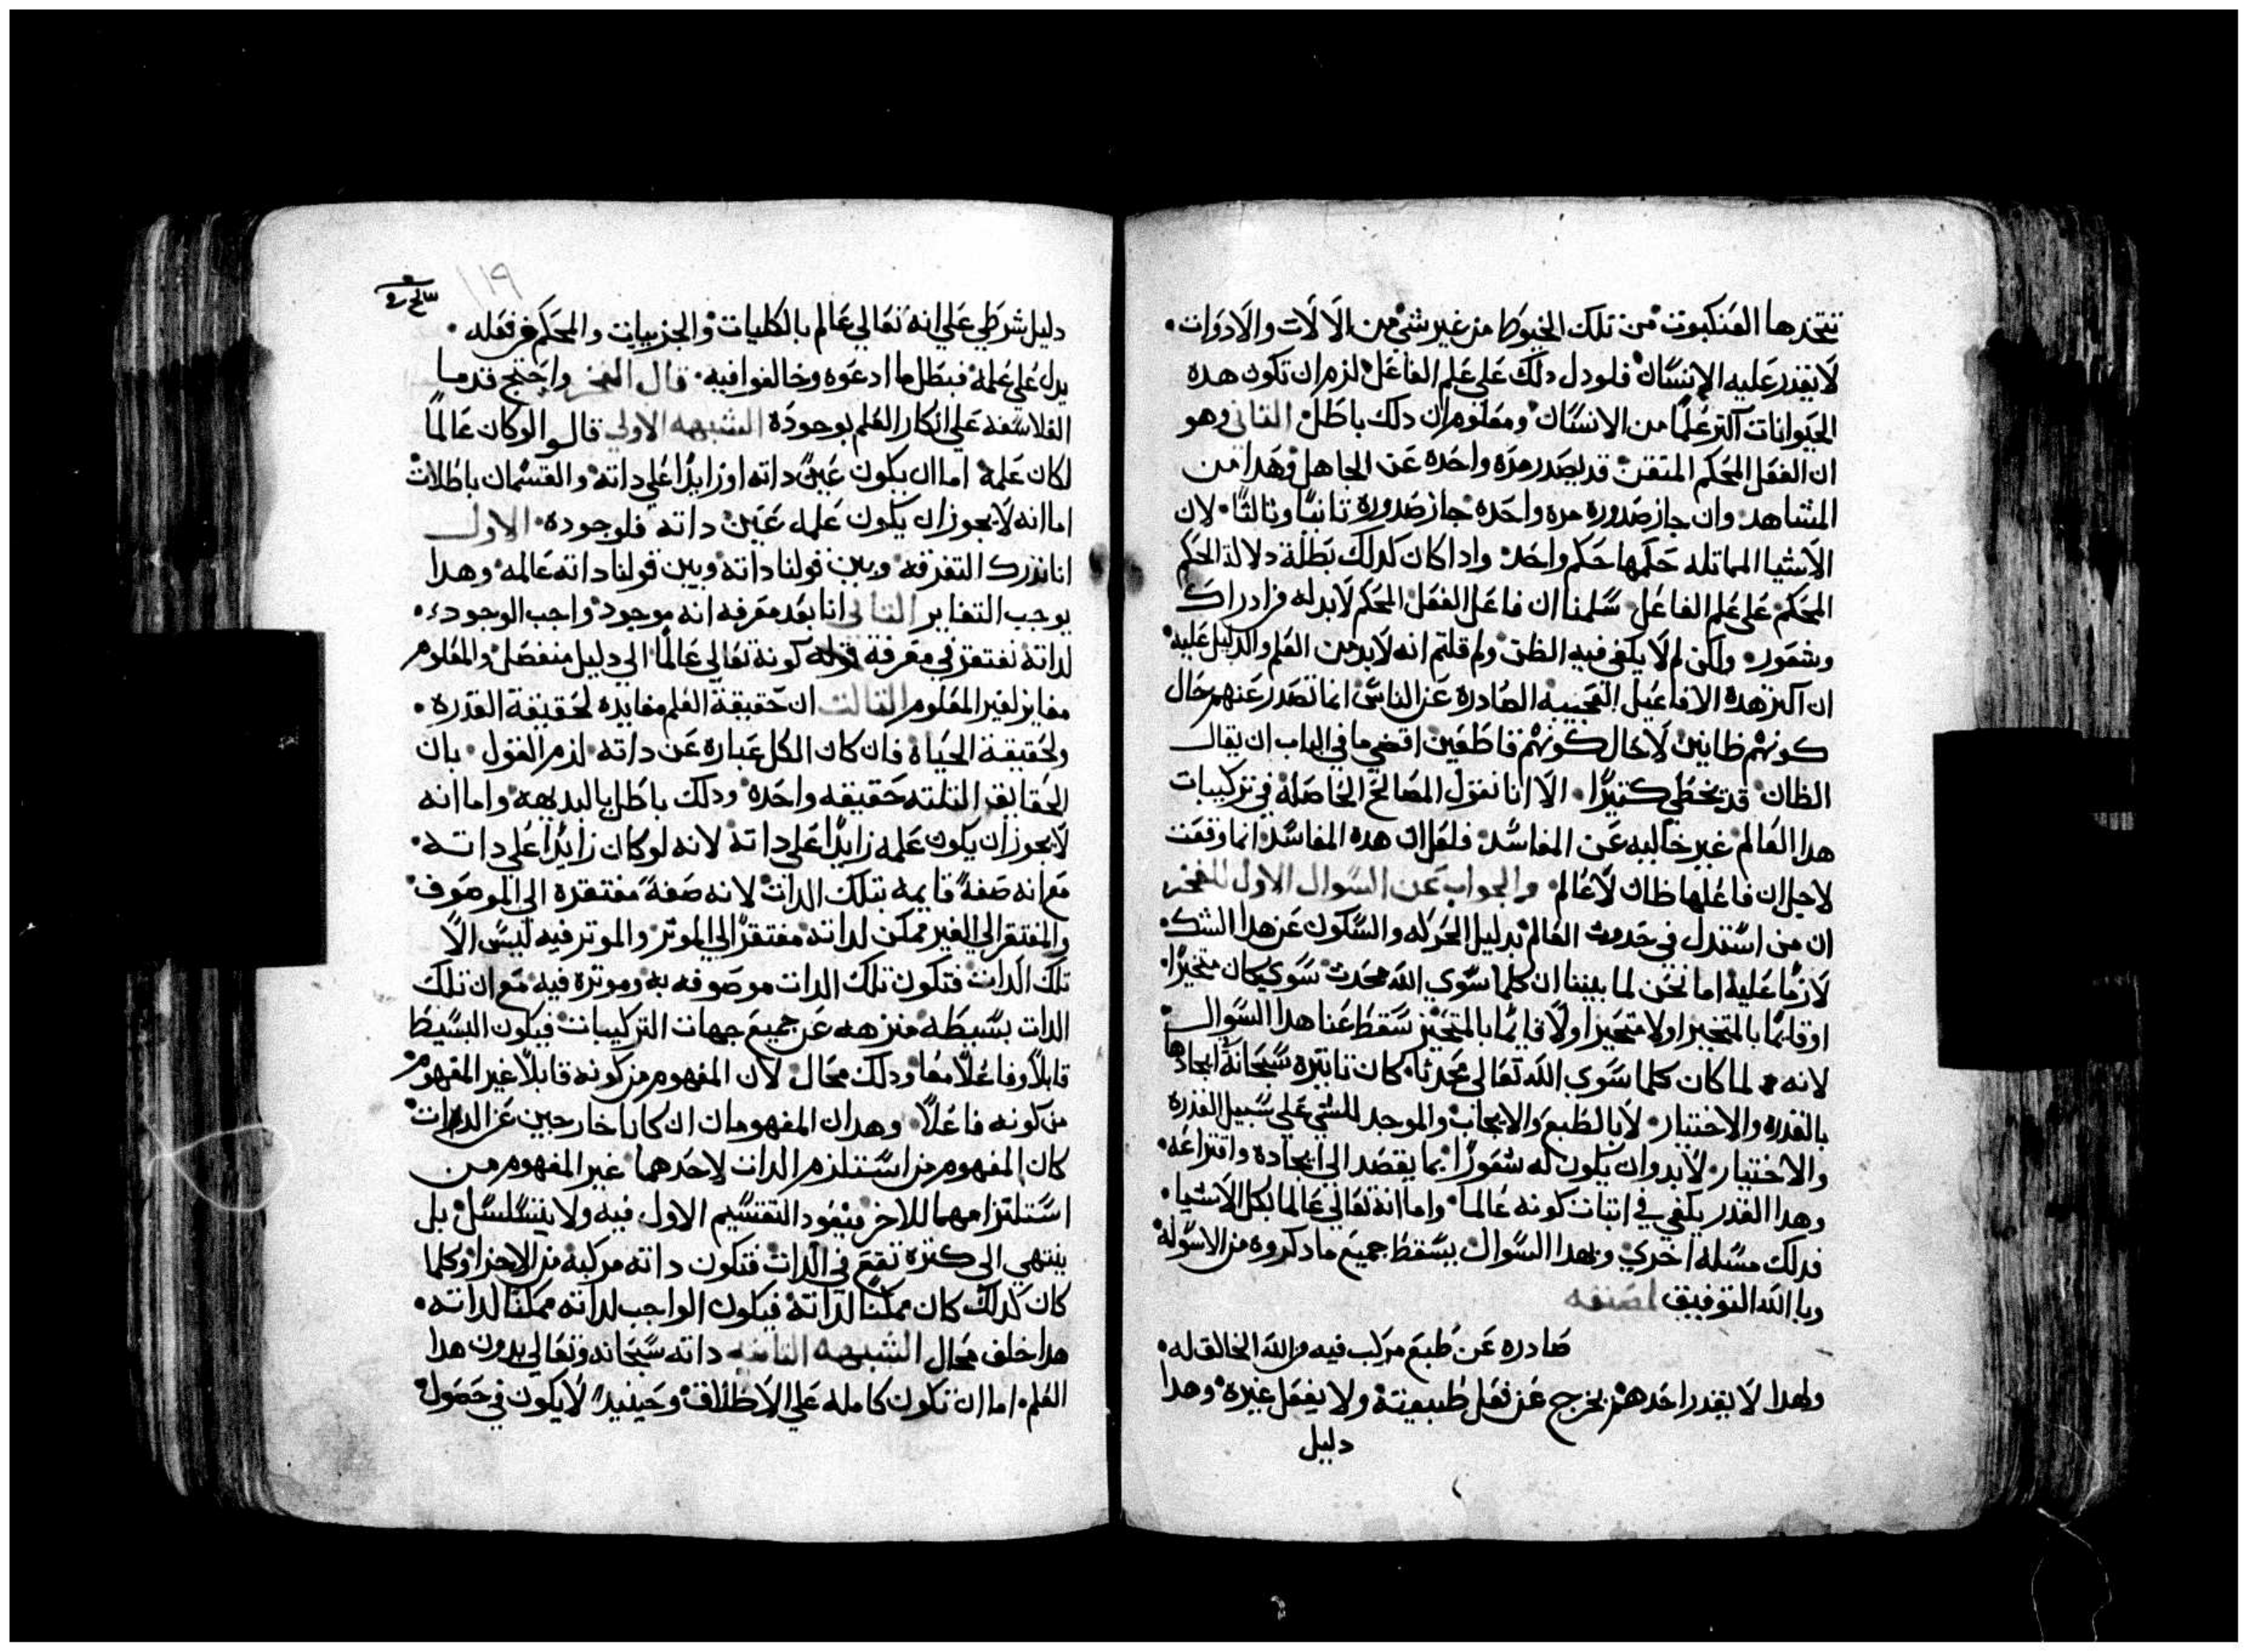 تتخدها العنكبوت من تلك الخيوط من غير شي من الالات والادوات
لا يقدر عليه الانسان فلو دل دلك على علم الفاعل لزم ان تكون هده
الحيوانات اكتر علما من الانسان ومعلوم ان دلك باطل التاني وهو
ان الفعل المحكم المتقن قد يصدر مره واحده عن الجاهل وهدا من
المشاهد وان جاز صدوره مره واحده جاز صدوره تانيا وتالتا لان
الاشيا المماتله حكمها حكم واحد وادا كان كدلك بطلة دلالة الحكم
المحكم على علم الفاعل سلمنا ان فاعل الفعل المحكم لا بد له من ادراك
وشعور ولكن لم لا يكفي فيه الظن ولم قلتم انه لا بد من العلم والدليل عليه
ان اكتر هده الافاعيل العجيبه الصادره عن الناس انما تصدر عنهم حال
كونهم ظانين لا حال كونهم قاطعين اقضي ما في الباب ان يقال
الظان قد يخطي كتيرا الا انا نقول المصالح الحاصلة في تركيبات
هدا العالم غير خاليه عن المفاسد فلعل ان هده المفاسد انما وقعت
لاجل ان فاعلها ظان لا عالم والجواب عن السوال الاول للفخر
ان من استدل في حدوت العالم بدليل الحركه والسكون عن هدا الشك
لازما عليه اما نحن لما بيننا ان كلما سوي الله محدت سوي كان متحيزا
او قايما بالمتحيز او لا متحيزا ولا قايما بالمتحيز سقط عنا هدا السوال
لانه لما كان كلما سوي الله تعالى محدثا كان تاتيره سبحانه ايجادها
بالقدره والاختيار لا بالطبع والايجاب والموجد للشي على سبيل القدره
والاختيار لا بد وان يكون له شعورا بما يقصد الى ايجاده واختراعه
وهدا القدر يكفي في اتبات كونه عالما واما انه تعالي عالما بكل الاشيا
فدلك مسله اخري وبهدا السوال يسقط جميع ما دكروه من الاسوله
وبا الله التوفيق لمصنفه
صادره عن طبع مركب فيه من الله الخالق له
ولهدا لا يقدر احدهم يخرج عن فعل طبيعتة ولا يفعل غيره وهدا
دليل
١١٩
دليل شرطي على انه تعالي عالم بالكليات والجزييات والمحكم في فعله
يدل على علمه فبطل ما ادعوه وخالفوا فيه قال الفخر واحتج قدما
الفلاسفه على انكار العلم بوجوده الشبهه الاولي قالوا لو كان عالما
لكان علمه اما ان يكون عين داته او زايدا على داته والقسمان باطلات
اما انه لا يجوز ان يكون علمه عين داته فلوجوده الاول
انا ندرك التفرقه وبين قولنا داته وبين قولنا داته عالمه وهدا
يوجب التغاير التاني انا بعد معرفه انه موجود واجب الوجود
لداته نفتقر في معرفة كونه تعالي عالما الي دليل منفصل والمعلوم
مغاير لغير المعلوم التالت ان حقيقة العلم مغايره لحقيقة القدره
ولحقيقة الحياه فان كان الكل عباره عن داته لزم القول بان
الحقايق التلته حقيقه واحده ودلك باطل بالبديهه واما انه
لا يجوز ان يكون علمه زايدا على داته لانه لو كان زايدا على داته
مع انه صفة قايمه بتلك الدات لانه صفة مفتقره الى الموصوف
والمفتقر الي الغير ممكن لداته مفتقرا الي الموتر والموتر فيه ليس الا
تلك الدات فتكون تلك الدات موصوفه به وموتره فيه مع ان تلك
الدات بسيطه منزهه عن جميع جهات التركيبات فيكون البسيط
قابلا وفاعلا معا ودلك محال لان المفهوم من كونه قابلا غير المفهوم
من كونه فاعلا وهدان المفهومان ان كانا خارجين عن الدات
كان المفهوم من استلزم الدات لاحدهما غير المفهوم من
استلتزامهما للاخر فيعود التقسيم الاول فيه ولا يتسلسل بل
ينتهي الى كتره تقع في الدات فتكون داته مركبه من الاجزا وكلما
كان كدلك كان ممكنا لداته فيكون الواجب لداته ممكنا لداته
هدا خلف محال الشبهه التانيه داته سبحانه وتعالي بدون هدا
العلم اما ان تكون كامله على الاطلاق وحينيد لا يكون في حصول